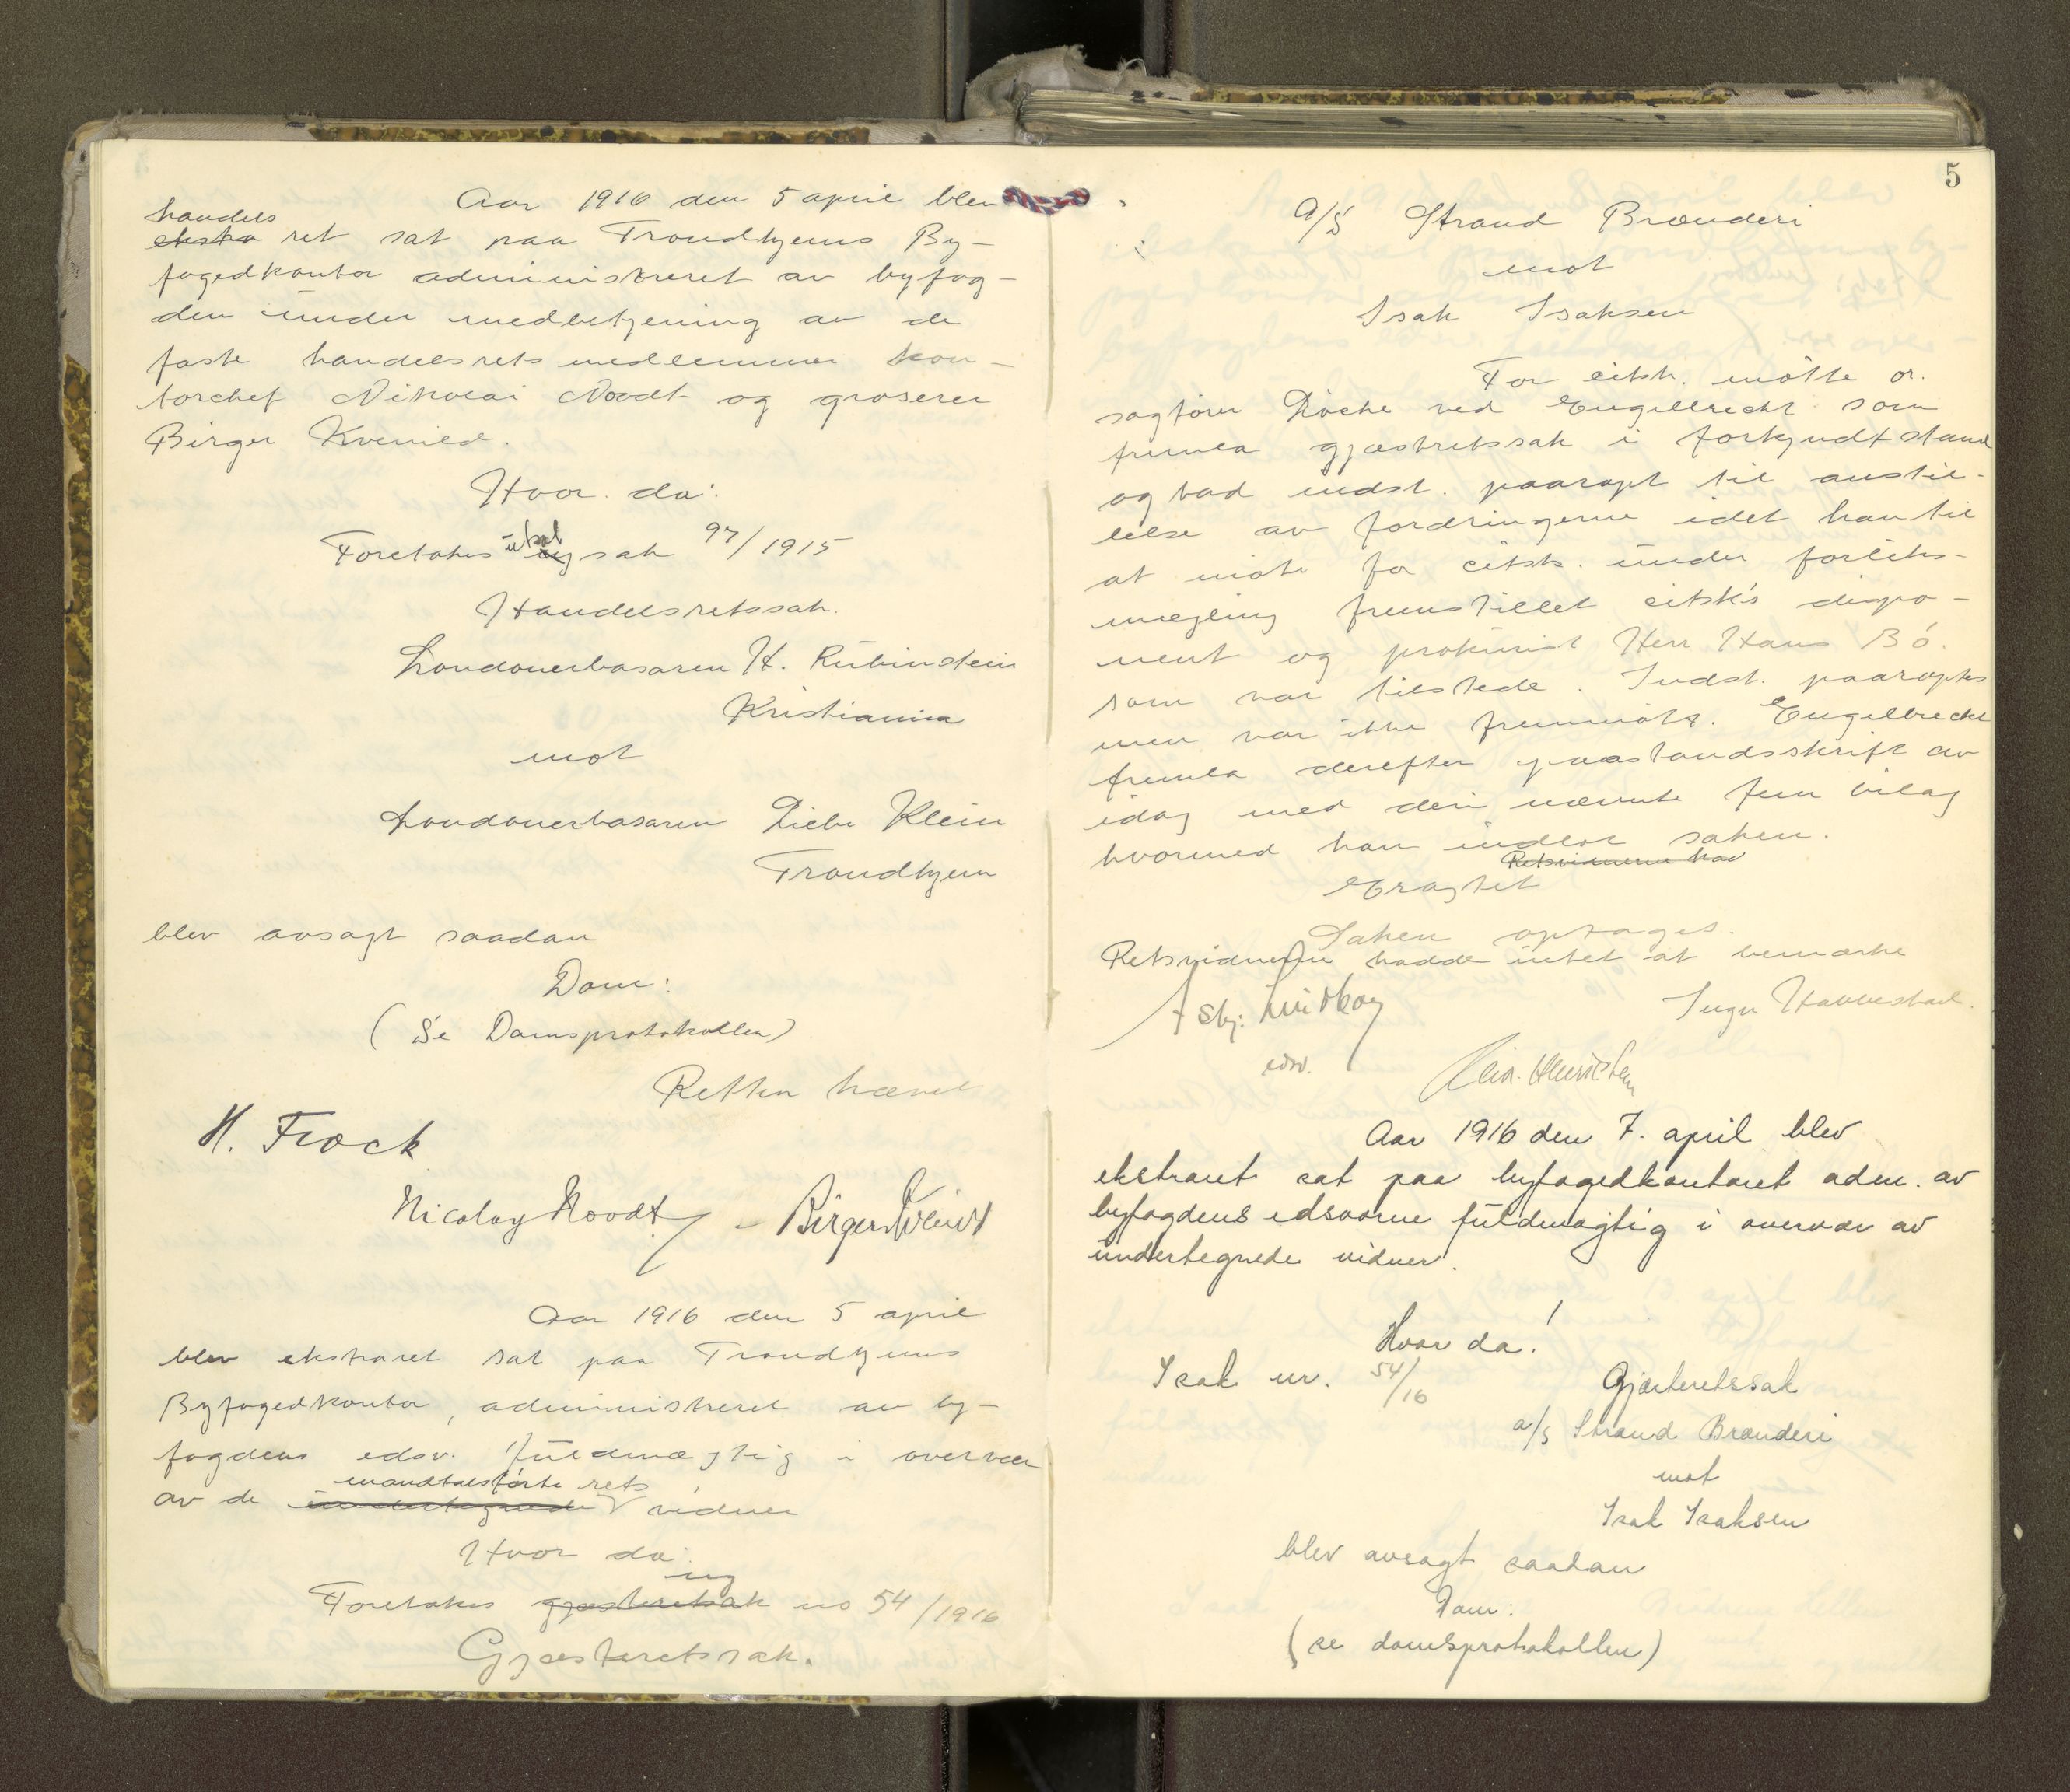 Aar 1916 den 5 april blev
handels
ekstra ret sat paa Trondhjems By-
fogedkontor administreret av byfog-
den under medbetjening av de
faste handelsretsmedlemmer kon-
torchef Nikolai Noodt og groserer
Birger Kvenild.
Hvor da:
utsat
Foretokes ny sak 97/1915
Handelsretssak.
Londonerbasaren H. Rubinstein
Kristiania
mot
Londonerbasaren Liebe Klein
Trondhjem
blev avsagt saadan
Dom:
(Se Domsprotokollen)
Retten hævet
H. Frock
Nicolay Noodt Birger Kvenild
Aar 1916 den 5 april
blev ekstraret sat paa Trondhjems
Byfogedkontor, administreret av by-
fogdens edsv. fuldmægtig i overvær
mandtalsførte rets
av de undertegnede vidner
Hvor da:
ny
Foretokes gjesteretsak no 54/1916
Gjæsteretssak.
5
A/S Strand Brænderi
mot
Isak Isaksen
For citsk. møtte or.
sagfører Løche ved Engelbrecht som
fremla gjæstretssak i forkyndt stand
og bad indst. paaropt til anstil-
lelse av fordringerne idet han til
at møte for citsk. under forliks-
mægling fremstillet citsk's dispo-
nent og prokurist Herr Hans Bö.
som var tilstede. Indst. paaroptes
men var ikke fremmøtt. Engelbrecht
fremla derefter paastandsskrift av
idag med deri nævnte fem bilag
hvormed han indlot saken.
Retsvidnerne hav
Eragtet
Saken optages.
Retsvidnerne hadde intet at bemærke
Asbj. Lindbog Inger
edsv.
Aar 1916 den 7. april blev
ekstraret sat paa byfogedkontoret adm. av
byfogdens edsvorne fuldmægtig i overvær av
undertegnede vidner.
Hvor da!
I sak nr. 54/16 Gjæsteretssak
a/s Strand Brænderi
mot
Isak Isaksen
blev avsagt saadan
Dom:
(se domsprotokollen)